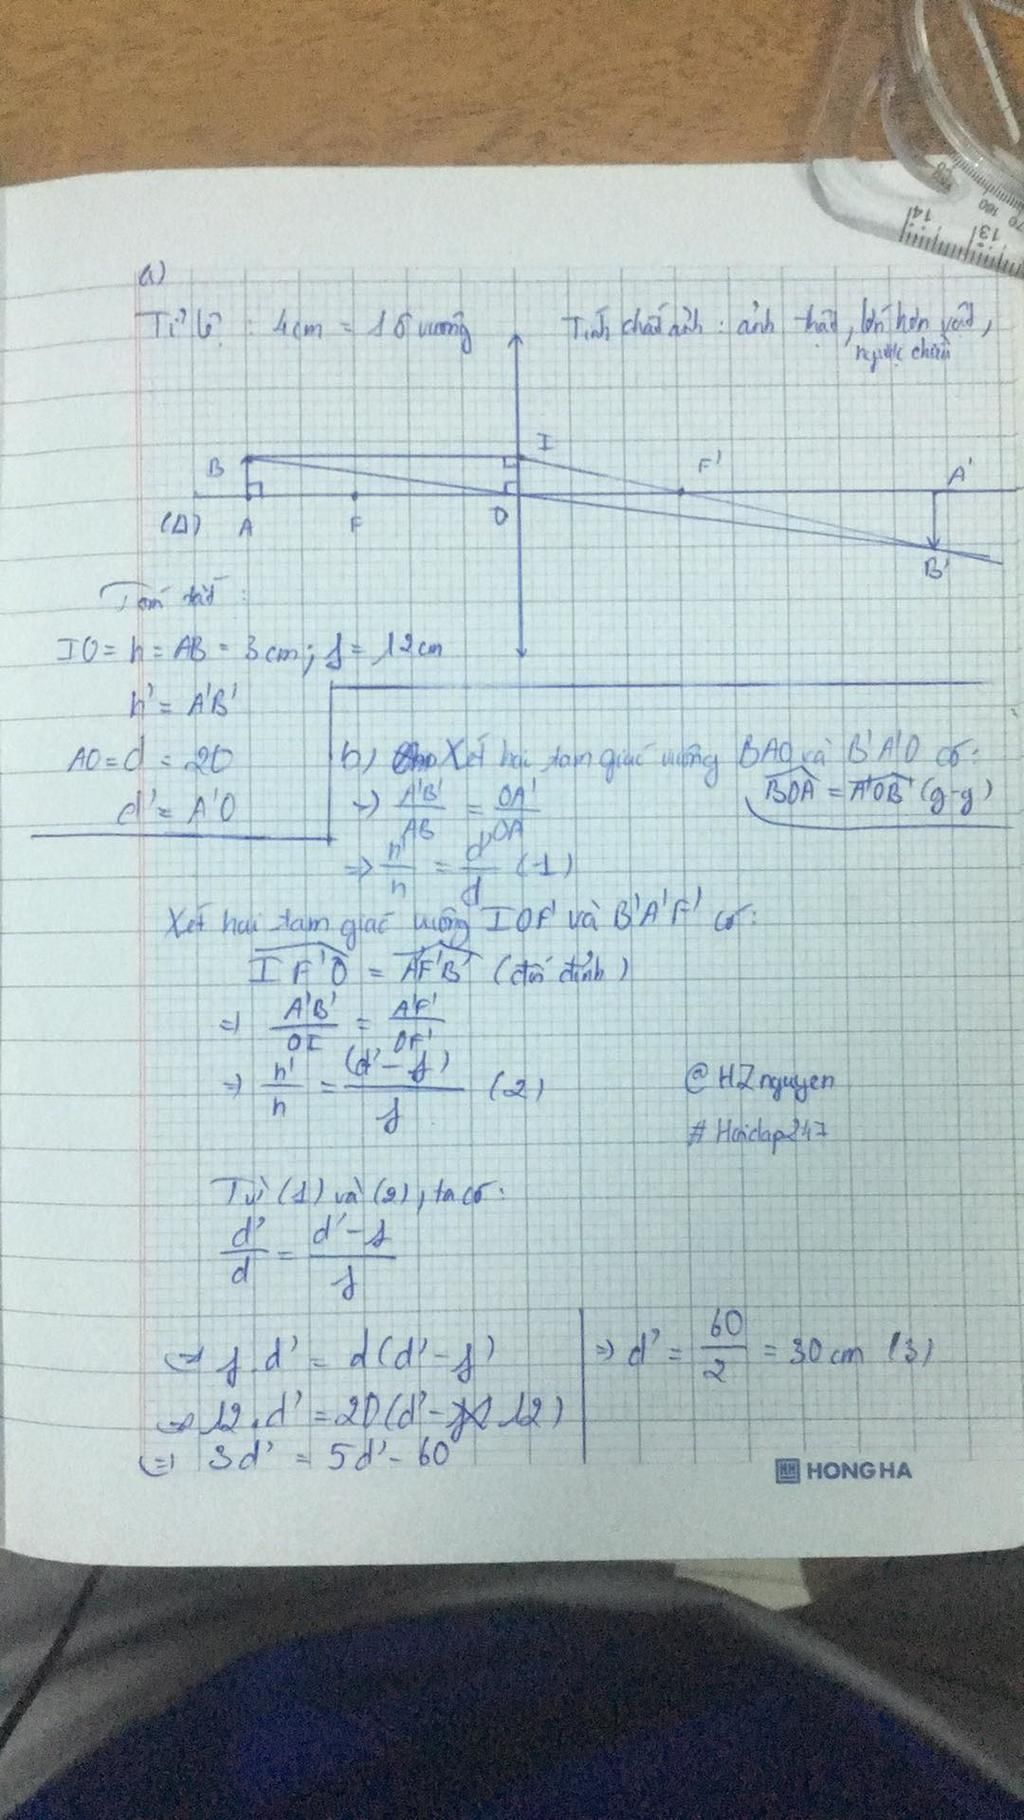 a)
Tỉ lệ : 4cm = 1 ô vuông
Tính chất ảnh : ảnh thật, lớn hơn vật,
ngược chiều
I
B
F'
A'
(Δ) A F O
B'
Tóm tắt :
IO = h = AB = 3cm; f = 12cm
h' = A'B'
AO = d = 20
d' = A'O
b) Xét hai tam giác vuông BAO và B'A'O có:
BOA = A'OB' (g-g)
→ A'B'/AB = OA'/OA
=> h'/h = d'/d (1)
Xét hai tam giác vuông IOF' và B'A'F' có:
IF'O = A'F'B' (đối đỉnh)
=> A'B'/OI = A'F'/OF'
=> h'/h = (d' - f)/f (2)
@HZnguyen
# Hoidap247
Từ (1) và (2), ta có:
d'/d = d' - f/f
=> f.d' = d(d' - f)
=> 12.d' = 20(d' - 12)
(=) 3d' = 5d' - 60
=> d' = 60/2 = 30cm (3)
HONG HA
14
13
100
70